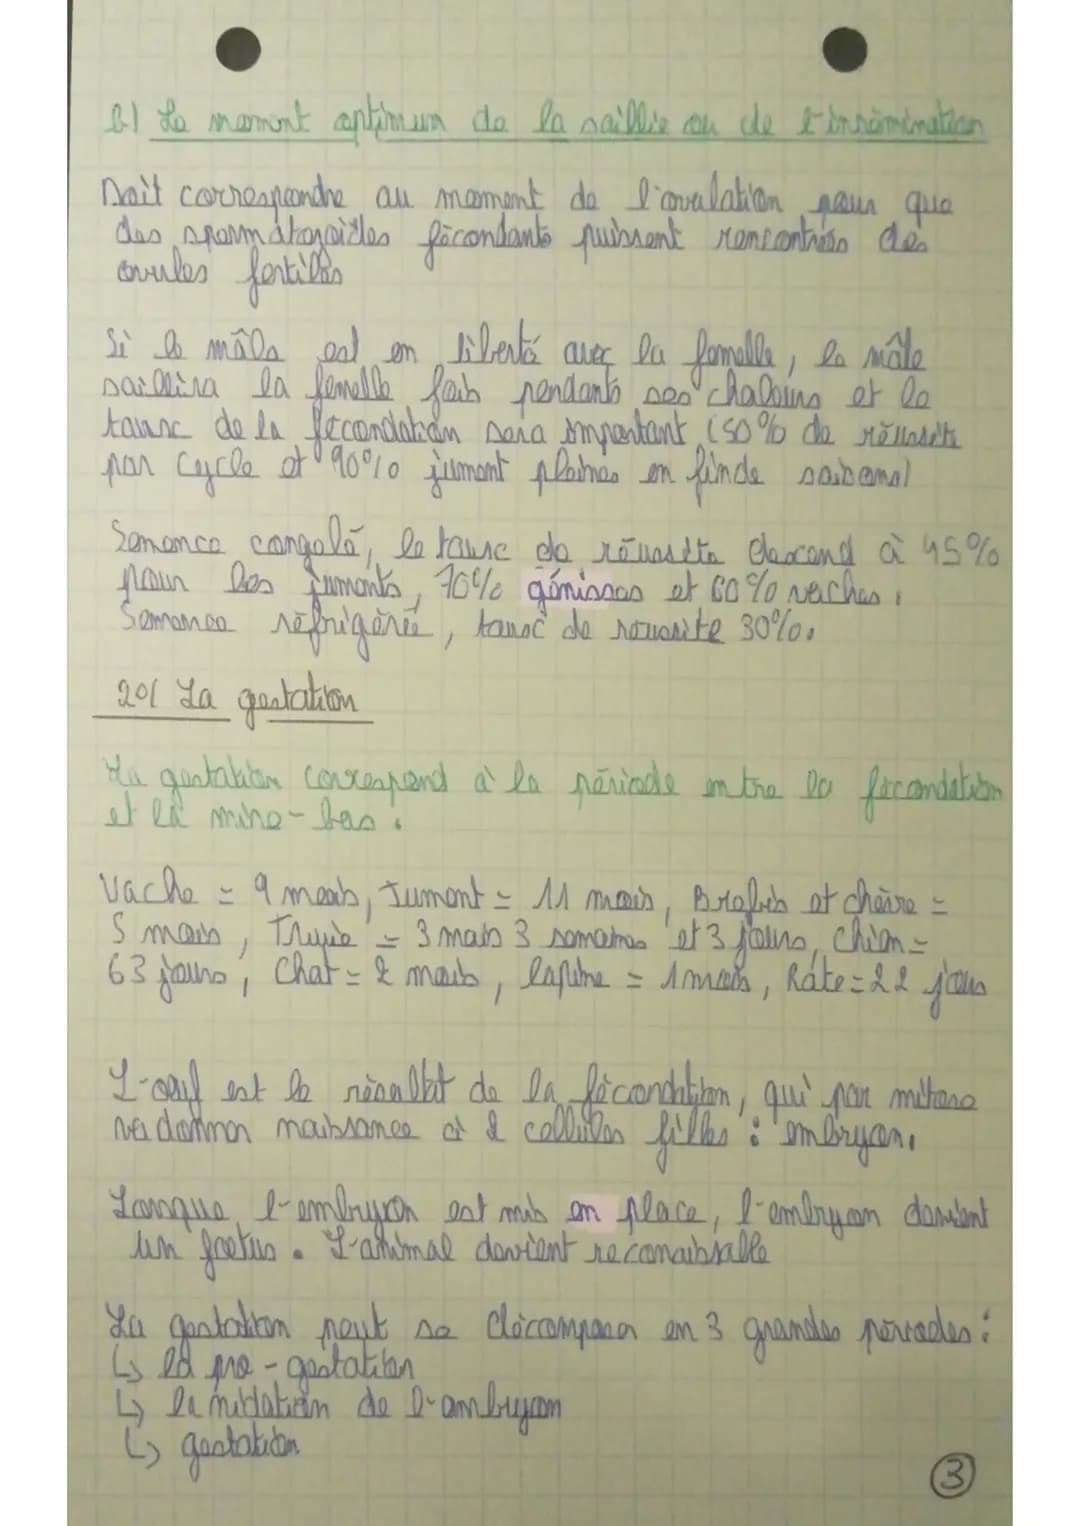 b) Le moment optimum de la saillie ou de l'insémination
Doit correspondre au moment de l'ovulation pour que
des spermatozoïdes fécondants puissent rencontrés des
ovules fertiles
Si le mâle est en liberté avec la femelle, le mâle
saillira la femelle fois pendants ses chaleurs et le
taux de la fécondation sera important (50% de réussite
par cycle et 90% jument pleines en fin de saison)
Semence congelé, le taux de réussite descend à 45%
pour les juments, 70% génisses et 60% vaches.
Semence réfrigérée, taux de réussite 30%.
20/ La gestation
La gestation correspond à la période entre la fécondation
et la mise-bas.
Vache = 9 mois, Jument = 11 mois, Brebis et chèvre =
5 mois, Truie = 3 mois 3 semaines et 3 jours, Chien =
63 jours, Chat = 2 mois, lapine = 1 mois, Rate = 22 jours
L'œuf est le résultat de la fécondation, qui par mitose
va donner naissance à 2 cellules filles : embryon.
Lorsque l'embryon est mis en place, l'embryon devient
un foetus. L'animal devient reconaissable
La gestation peut se décomposer en 3 grandes périodes :
↳ la pré-gestation
↳ la nidation de l'embryon
↳ gestation
3